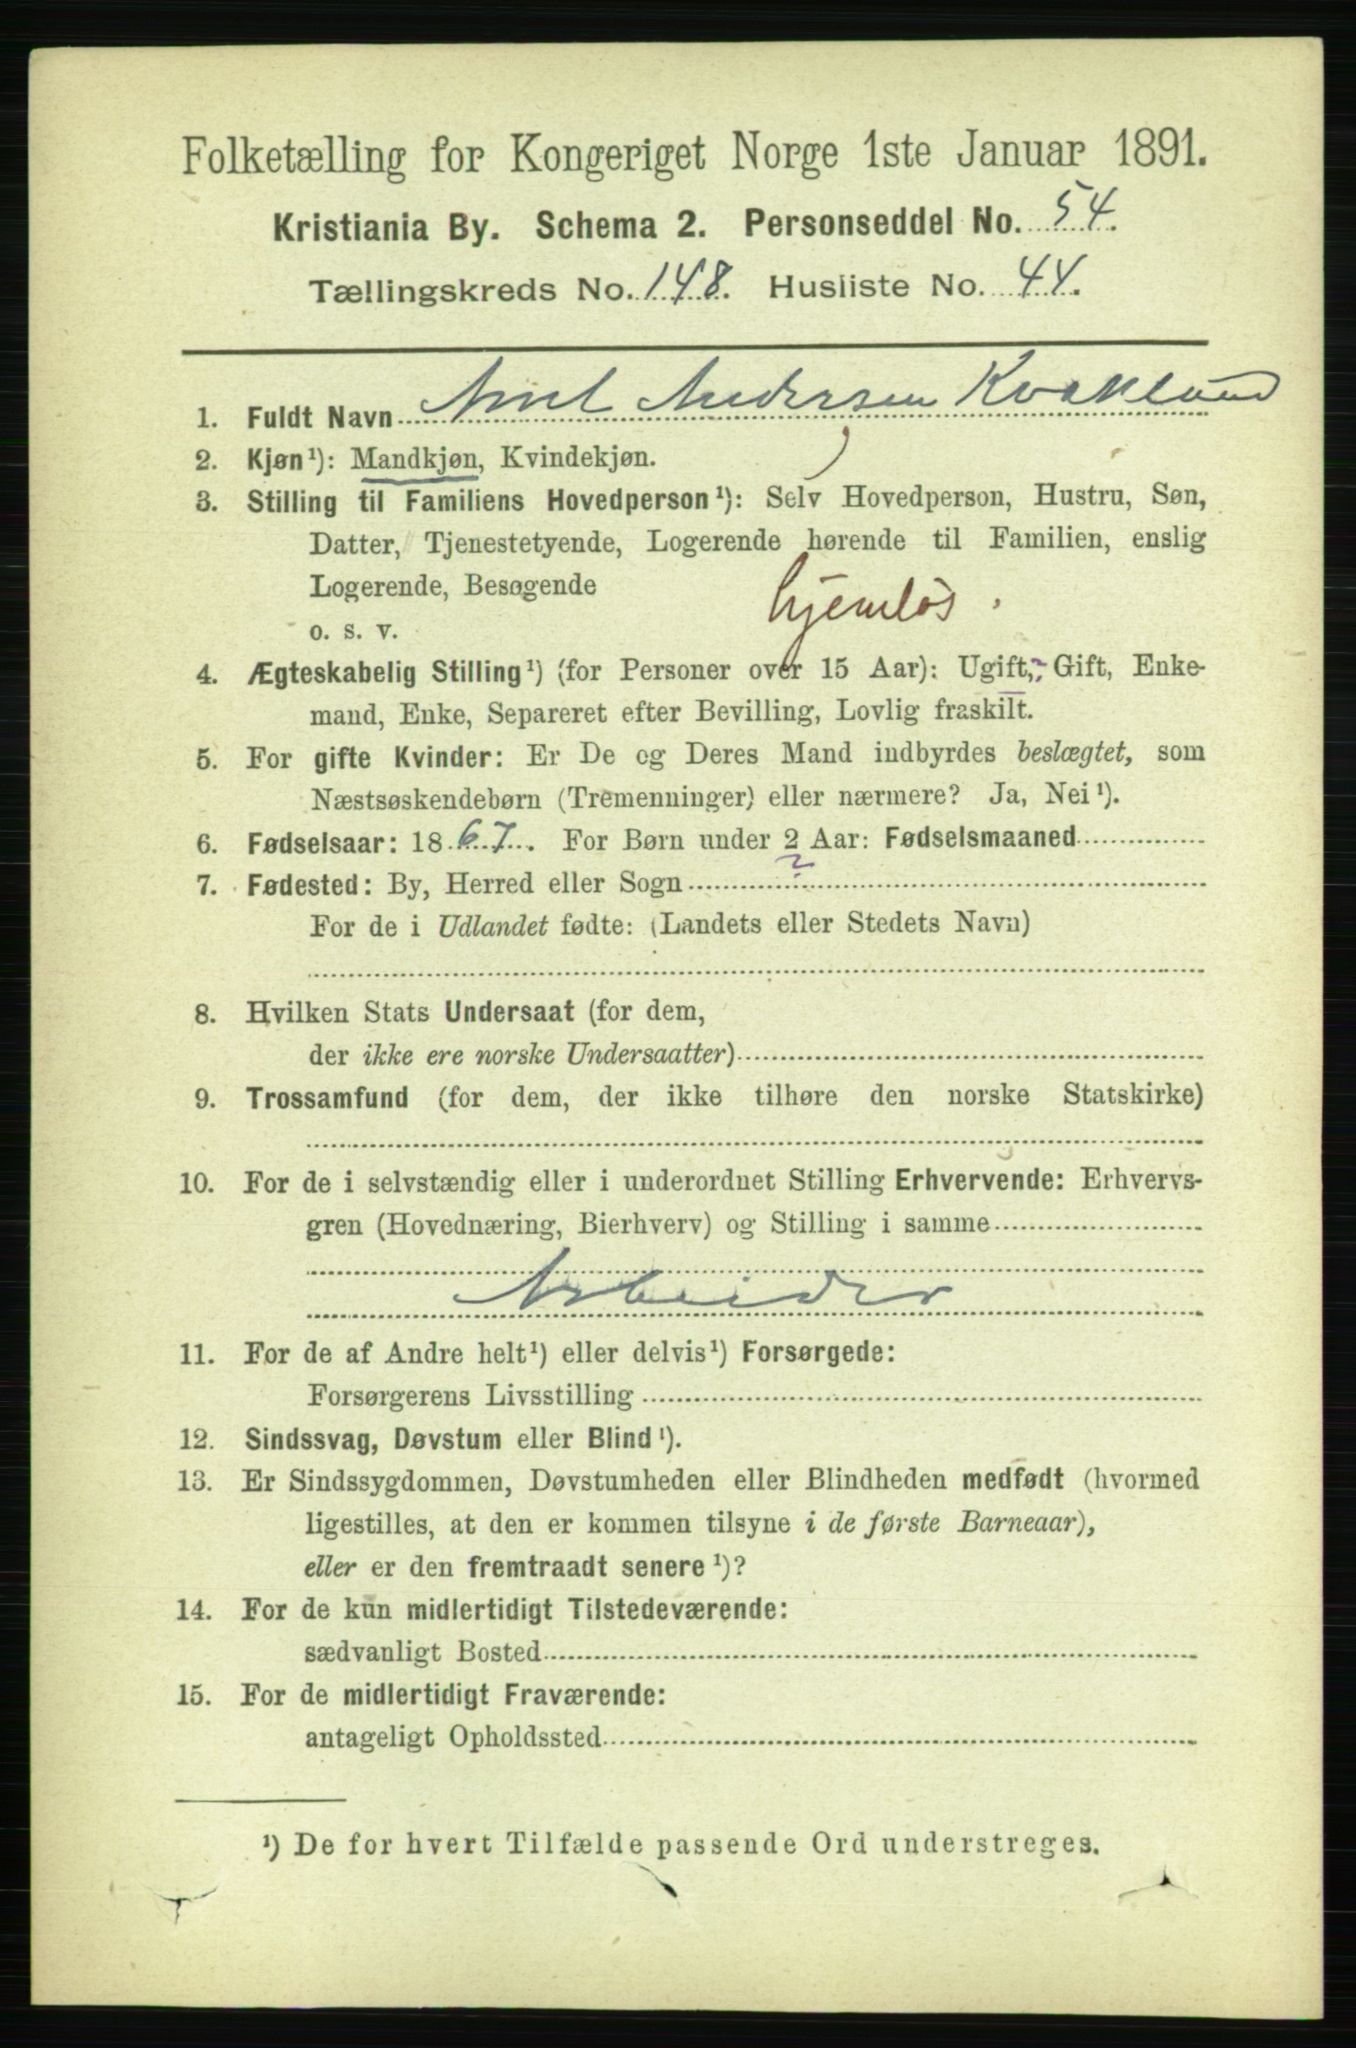 Folketælling for Kongeriget Norge 1ste Januar 1891.
Kristiania By. Schema 2. Personseddel No. 54.
Tællingskreds No. 148. Husliste No. 44.
1. Fuldt Navn Axel Andersen
2. Kjøn¹): Mandkjøn, Kvindekjøn.
3. Stilling til Familiens Hovedperson¹): Selv Hovedperson, Hustru, Søn,
Datter, Tjenestetyende, Logerende hørende til Familien, enslig
Logerende, Besøgende
hjemløs.
o. s. v.
4. Ægteskabelig Stilling¹) (for Personer over 15 Aar): Ugift, ? Gift, Enke-
mand, Enke, Separeret efter Bevilling, Lovlig fraskilt.
5. For gifte Kvinder: Er De og Deres Mand indbyrdes beslægtet, som
Næstsøskendebørn (Tremenninger) eller nærmere? Ja, Nei¹).
6. Fødselsaar: 1867. For Børn under 2 Aar: Fødselsmaaned
7. Fødested: By, Herred eller Sogn ?
For de i Udlandet fødte: (Landets eller Stedets Navn)
8. Hvilken Stats Undersaat (for dem,
der ikke ere norske Undersaatter)
9. Trossamfund (for dem, der ikke tilhøre den norske Statskirke)
10. For de i selvstændig eller i underordnet Stilling Erhvervende: Erhvervs-
gren (Hovednæring, Bierhverv) og Stilling i samme
Arbeider
11. For de af Andre helt¹) eller delvis¹) Forsørgede:
Forsørgerens Livsstilling
12. Sindssvag, Døvstum eller Blind¹).
13. Er Sindssygdommen, Døvstumheden eller Blindheden medfødt (hvormed
ligestilles, at den er kommen tilsyne i de første Barneaar),
eller er den fremtraadt senere¹)?
14. For de kun midlertidigt Tilstedeværende:
sædvanligt Bosted
15. For de midlertidigt Fraværende:
antageligt Opholdssted
¹) De for hvert Tilfælde passende Ord understreges.